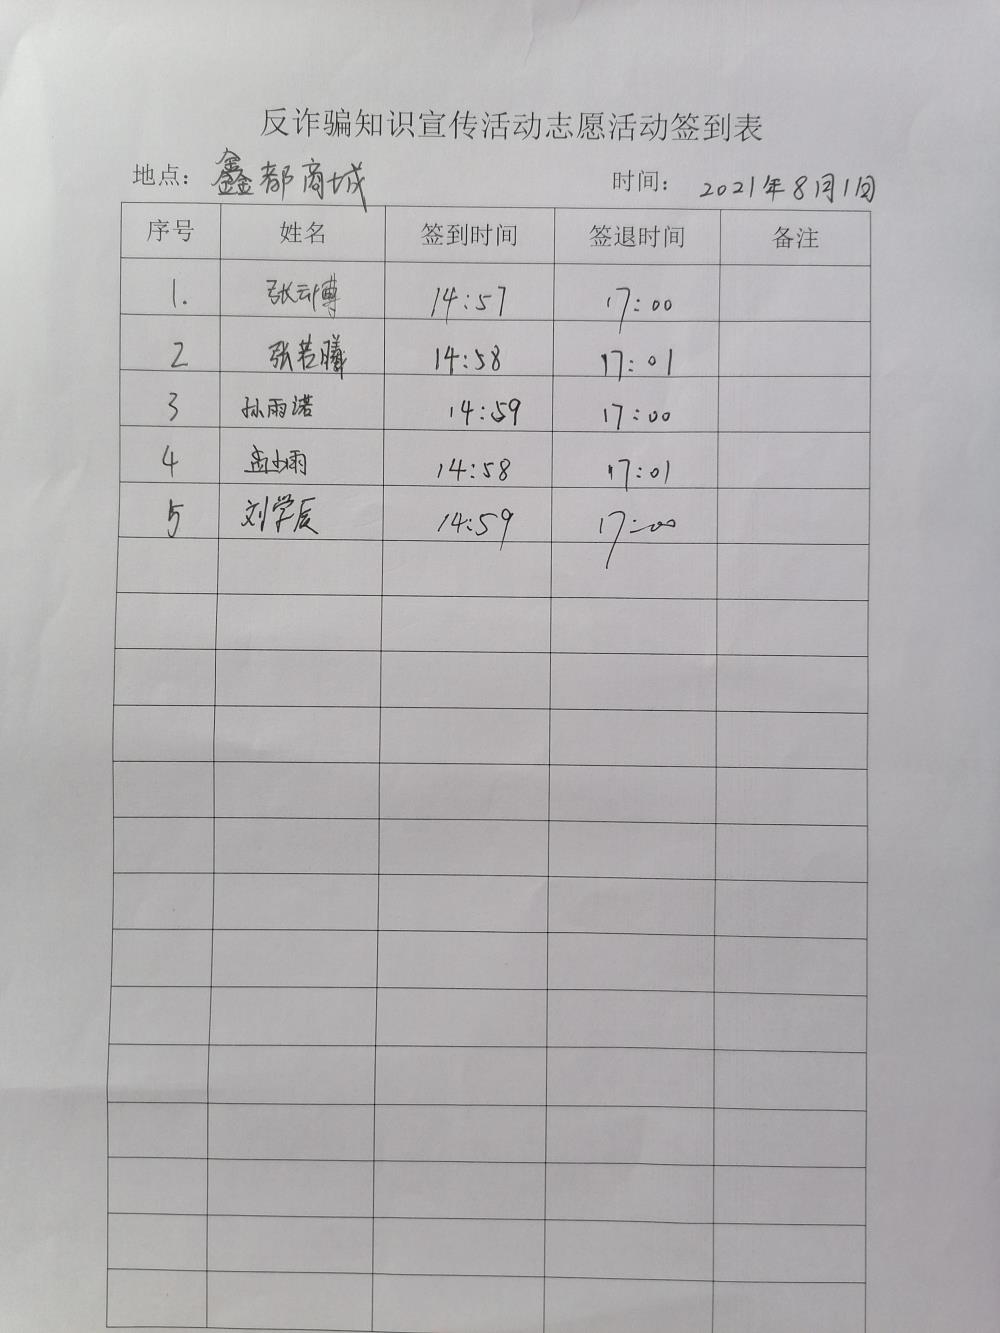 反诈骗知识宣传活动志愿活动签到表
地点：鑫都商城 时间：2021年8月1日
序号 姓名 签到时间 签退时间 备注
1. 张云博 14:57 17:00
2 张若曦 14:58 17:01
3 孙雨诺 14:59 17:00
4 14:58 17:01
5 刘学辰 14:59 17:00